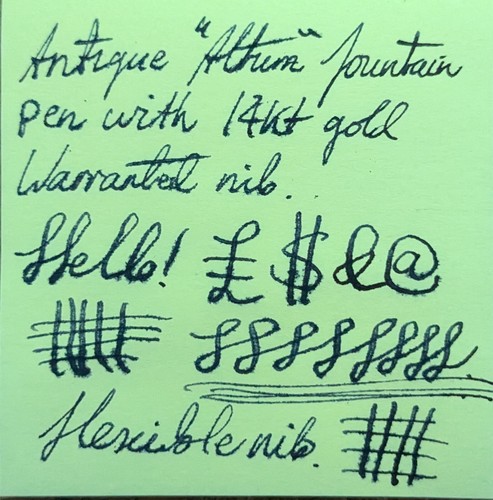 Antique "Altum" fountain
pen with 14kt gold
Warranted nib.
Hello! £ $ & @
Flexible nib.